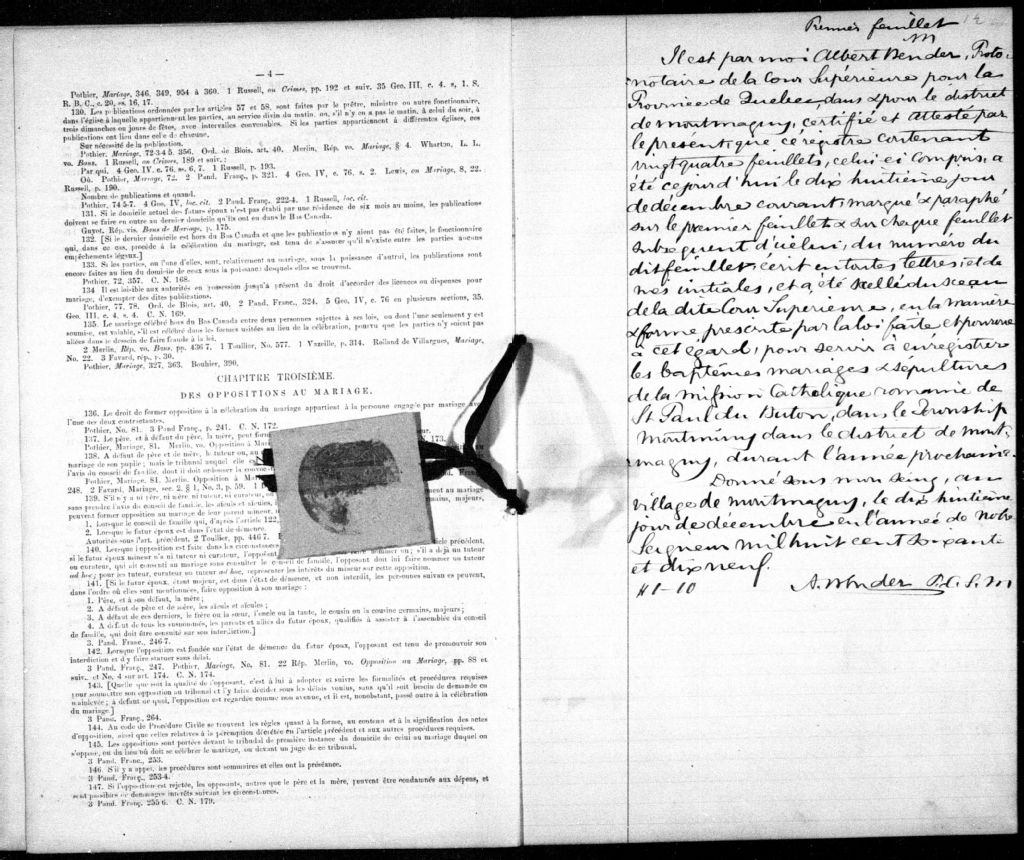 — 4 —
Pothier, Mariage, 346, 349, 954 à 360. 1 Russell, on Crimes, pp. 192 et suiv. 35 Geo. III, c. 4. s, 1. S.
R. B. C., c. 20, ss. 16, 17.
130. Les publications ordonnées par les articles 57 et 58, sont faites par le prêtre, ministre ou autre fonctionnaire,
dans l'église à laquelle appartiennent les parties, au service divin du matin, ou, s'il n'y en a pas le matin, à celui du soir, à
trois dimanches ou jours de fêtes, avec intervalles convenables. Si les parties appartiennent à différentes églises, ces
publications ont lieu dans celle de chacune.
Sur nécessité de la publication.
Pothier, Mariage, 72-3-4-5, 356. Ord. de Blois, art. 40. Merlin, Rép. vo. Mariage, § 4. Wharton, L. L.
vo. Bans. 1 Russell, on Crimes, 189 et suiv.:
Par qui. 4 Geo. IV, c. 76, ss. 6, 7. 1 Russell, p. 193.
Où. Pothier, Mariage, 72. 2 Pand. Franç., p. 321. 4 Geo. IV, c. 76, s. 2. Lewis, on Mariage, 8, 22.
Russell, p. 190.
Nombre de publications et quand.
Pothier, 74-5-7. 4 Geo, IV, loc. cit. 2 Pand. Franç. 222-4. 1 Russell, loc. cit.
131. Si le domicile actuel des futurs époux n'est pas établi par une résidence de six mois au moins, les publications
doivent se faire en outre au dernier domicile qu'ils ont eu dans le Bas Canada.
Guyot, Rép. vis. Bans de Mariage, p. 175.
132. [Si le dernier domicile est hors du Bas Canada et que les publications n'y aient pas été faites, le fonctionnaire
qui, dans ce cas, procède à la célébration du mariage, est tenu de s'assurer qu'il n'existe entre les parties aucuns
empêchements légaux.]
133. Si les parties, ou l'une d'elles, sont, relativement au mariage, sous la puissance d'autrui, les publications sont
encore faites au lieu du domicile de ceux sous la puissance desquels elles se trouvent.
Pothier, 72, 357. C. N. 168.
134 Il est loisible aux autorités en possession jusqu'à présent du droit d'accorder des licences ou dispenses pour
mariage, d'exempter des dites publications.
Pothier, 77, 78. Ord. de Blois, art. 40. 2 Pand. Franc., 324. 5 Geo. IV, c. 76 en plusieurs sections, 35.
Geo. III, c. 4, s. 4. C. N. 169.
135. Le mariage célébré hors du Bas Canada entre deux personnes sujettes à ses lois, ou dont l'une seulement y est
soumise, est valable, s'il est célébré dans les formes usitées au lieu de la célébration, pourvu que les parties n'y soient pas
allées dans le dessein de faire fraude à la loi.
2 Merlin, Rép. vo. Bans, pp. 436 7. 1 Toullier, No. 577. 1 Vazeille, p. 314. Rolland de Villargues, Mariage,
No. 22. 3 Favard, rép., p. 30.
Pothier, Mariage, 327, 363. Bouhier, 390.
CHAPITRE TROISIÈME.
DES OPPOSITIONS AU MARIAGE.
136. Le droit de former opposition à la célébration du mariage appartient à la personne engagée par mariage avec
l'une des deux contractantes.
Pothier, No. 81. 3 Pand Franç., p. 241. C. N. 172.
137. Le père, et à défaut du père, la mère, peut form
Pothier, Mariage, 81. Merlin, vo. Opposition à Mari 173.
138. A défaut de père et de mère, le tuteur ou, au
mariage de son pupile; mais le tribunal auquel elle
l'avis du conseil de famille, dont il doit ordonner la convoc
Pothier, Mariage, 81. Merlin. Opposition à Ma
248. 2 Favard, Mariage, sec. 2, § 1, No. 3, p. 59.
139. S'il n'y a ni père, ni mère, ni tuteur, ni curateur, ment au mariage
sans prendre l'avis du conseil de famille, les aïeuls et aïeules, majeurs,
peuvent former opposition au mariage de leur parent mineur,
1. Lorsque le conseil de famille qui, d'après l'article 122,
2. Lorsque le futur époux est dans l'état de démence.
Autorités sous l'art. précédent. 2 Toullier, pp. 446 7.
140. Lorsque l'opposition est faite dans les circonstances icle précédent,
si le futur époux mineur n'a ni tuteur ni curateur, l'opposant ; s'il a déjà un tuteur
ou curateur, qui ait consenti au mariage sans consulter le conseil de famille, l'opposant doit lui faire nommer un tuteur
ad hoc; pour les tuteur, curateur ou tuteur ad hoc, représenter les intérêts du mineur sur cette opposition.
141. [Si le futur époux, étant majeur, est dans l'état de démence, et non interdit, les personnes suivantes peuvent,
dans l'ordre où elles sont mentionnées, faire opposition à son mariage:
1. Père, et à son défaut, la mère;
2. A défaut de père et de mère, les aïeuls et aïeules;
3. A défaut de ces derniers, le frère ou la sœur, l'oncle ou la tante, le cousin ou la cousine germains, majeurs;
4. A défaut de tous les susnommés, les parents et alliés du futur époux, qualifiés à assister à l'assemblée du conseil
de famille, qui doit être consulté sur son interdiction.]
3. Pand. Franc., 246-7.
142. Lorsque l'opposition est fondée sur l'état de démence du futur époux, l'opposant est tenu de promouvoir son
interdiction et d'y faire statuer sans délai.
3 Pand. Franç., 247. Pothier, Mariage, No. 81. 22 Rép. Merlin, vo. Opposition au Mariage, pp. 88 et
suiv. et No. 4 sur art. 174. C. N. 174.
143. [Quelle que soit la qualité de l'opposant, c'est à lui à adopter et suivre les formalités et procédures requises
pour soumettre son opposition au tribunal et l'y faire décider sous les délais voulus, sans qu'il soit besoin de demande en
mainlevée; à défaut de quoi, l'opposition est regardée comme non avenue, et il est, nonobstant, passé outre à la célébration
du mariage.]
3 Pand. Franç., 264.
144. Au code de Procédure Civile se trouvent les règles quant à la forme, au contenu et à la signification des actes
d'opposition, ainsi que celles relatives à la péremption décrétée en l'article précédent et aux autres procédures requises.
145. Les oppositions sont portées devant le tribunal de première instance du domicile de celui au mariage duquel on
s'oppose, ou du lieu où doit se célébrer le mariage, ou devant un juge de ce tribunal.
3 Pand. Franc., 253.
146. S'il y a appel, les procédures sont sommaires et elles ont la préséance.
3 Pand. Franç., 253-4.
147. Si l'opposition est rejetée, les opposants, autres que le père et la mère, peuvent être condamnés aux dépens, et
sont passibles de dommages intérêts suivant les circonstances.
3 Pand. Franç. 255 6. C. N. 179.
Premier feuillet
Il est par moi Albert Bender, Proto-
notaire de la Cour Supérieure pour la
Province de Quebec, dans & pour le district
de Montmagny, certifié et attesté par
le présent, que ce régistre contenant
vingt quatre feuillets, celui ci compris, a
été ce jour d'hui le dix huitième jour
de décembre courant, marqué & paraphé
sur le premier feuillet & sur chaque feuillet
subséquent d'icelui, du numéro du
dit feuillet, écrit en toutes lettres, et de
mes initiales, et a été scellé du sceau
de la dite Cour Supérieure, en la manière
& forme prescrite par la loi faite et pourvue
à cet égard, pour servir à enregistrer
les baptêmes mariages & sépultures
de la mission Catholique romaine de
St Paul du Buton, dans le Township
Montminy dans le district de Mont-
magny, durant l'année prochaine.
Donné sous mon seing, au
village de Montmagny, le dix huitième
jour de décembre en l'année de Notre
Seigneur mil huit cent soixante
et dix neuf.
A. Bender P. C. S. M